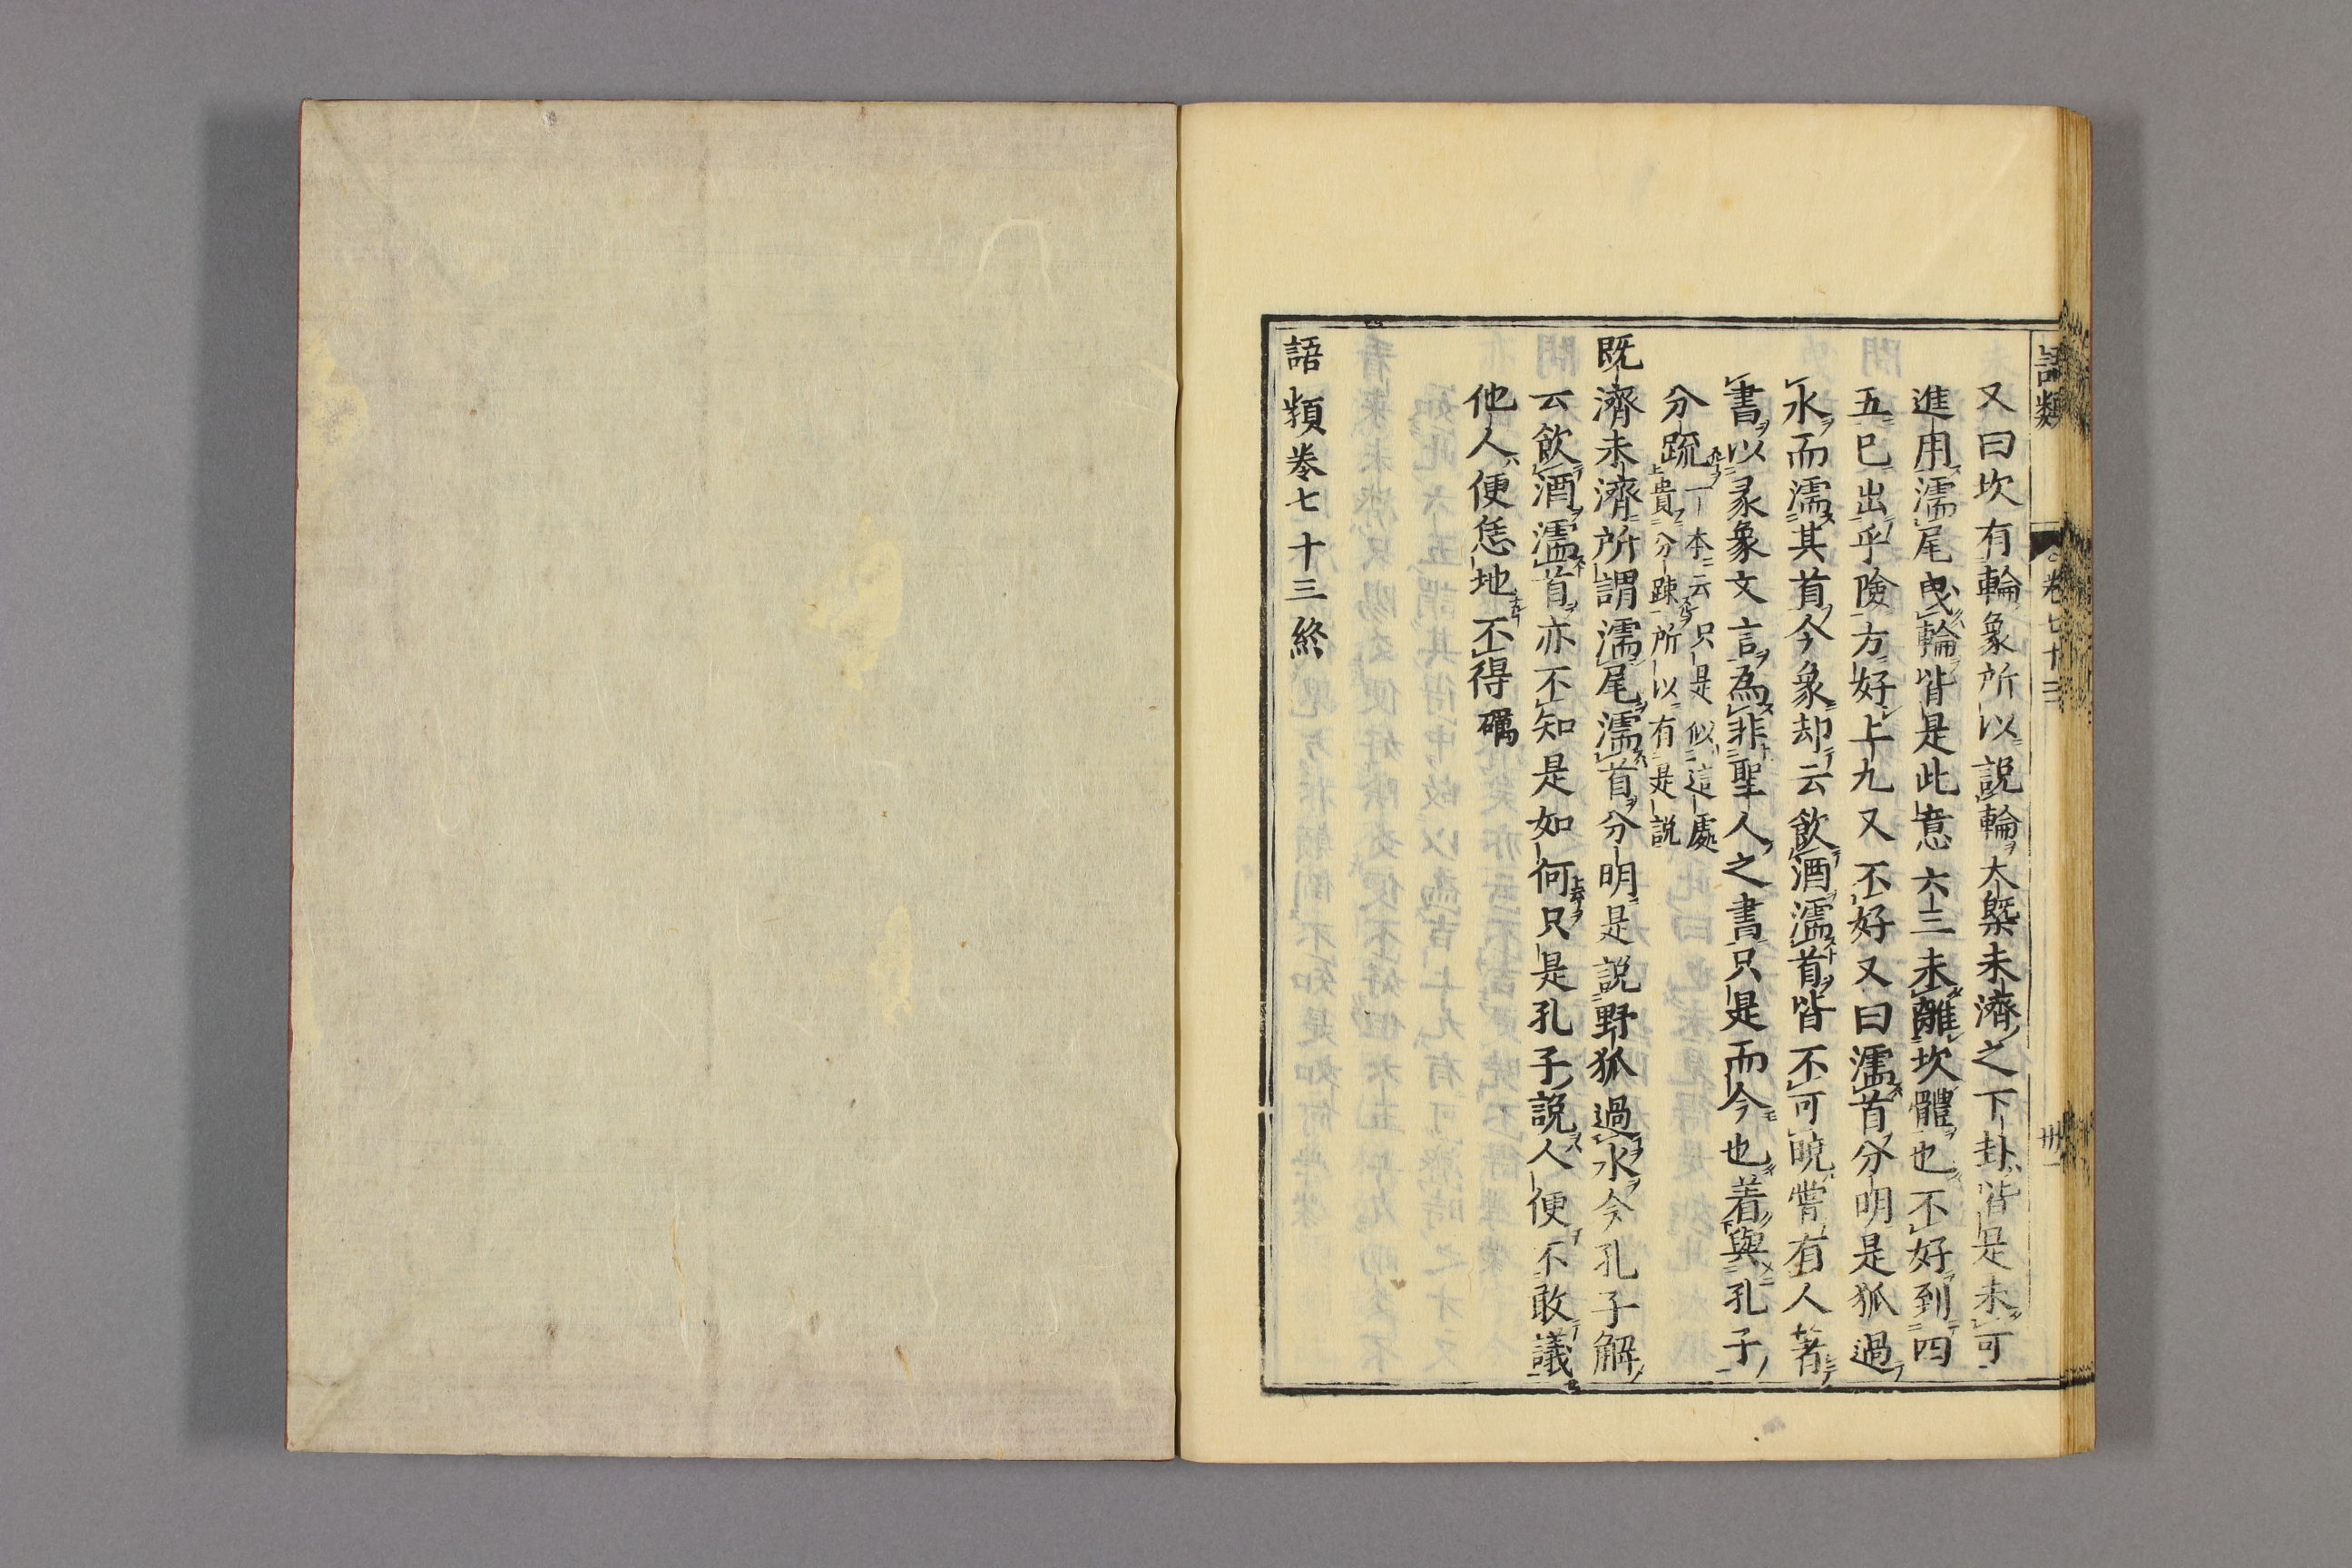 語類 卷七十三 卅一
又曰坎有輪象所以說輪大槩未濟之下卦皆是未可
進用濡尾曳輪皆是此意六三未離坎體也不好到四
五已出乎險方好上九又不好又曰濡首分明是狐過
水而濡其首今象却云飲酒濡首皆不可曉嘗有人著
書以彖象文言為非聖人之書只是而今也着與孔子
分疏一本云只是似這處
貴分疎所以有是説
既濟未濟所謂濡尾濡首分明是説野狐過水今孔子解
云飲酒濡首亦不知是如何只是孔子說人便不敢議
他人便恁地不得礪
語類卷七十三終